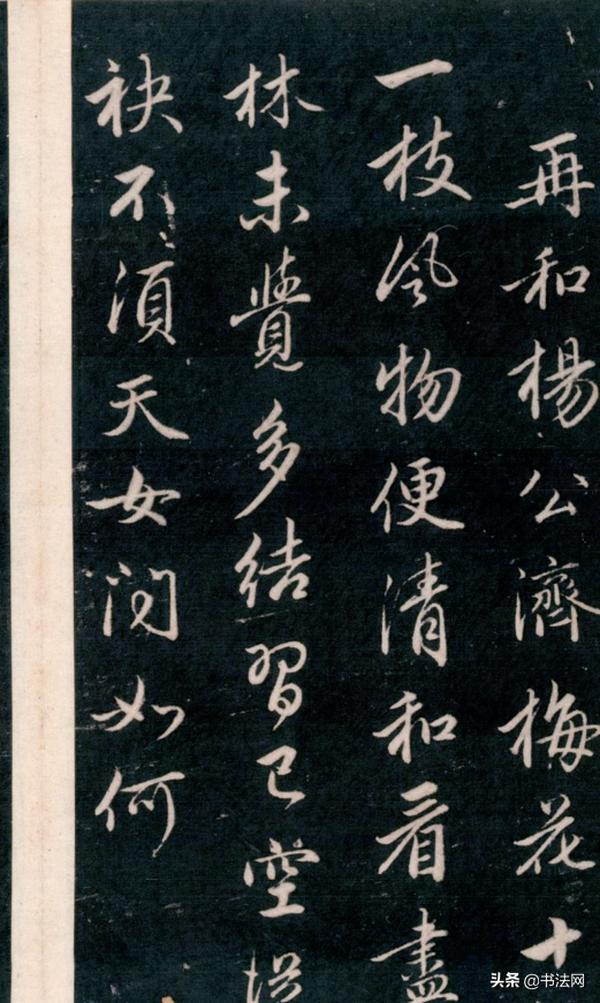 再和楊公濟梅花十
一枝風物便清和看盡
林未覺多結習已空
袂不須天女問如何
头条 @书法网